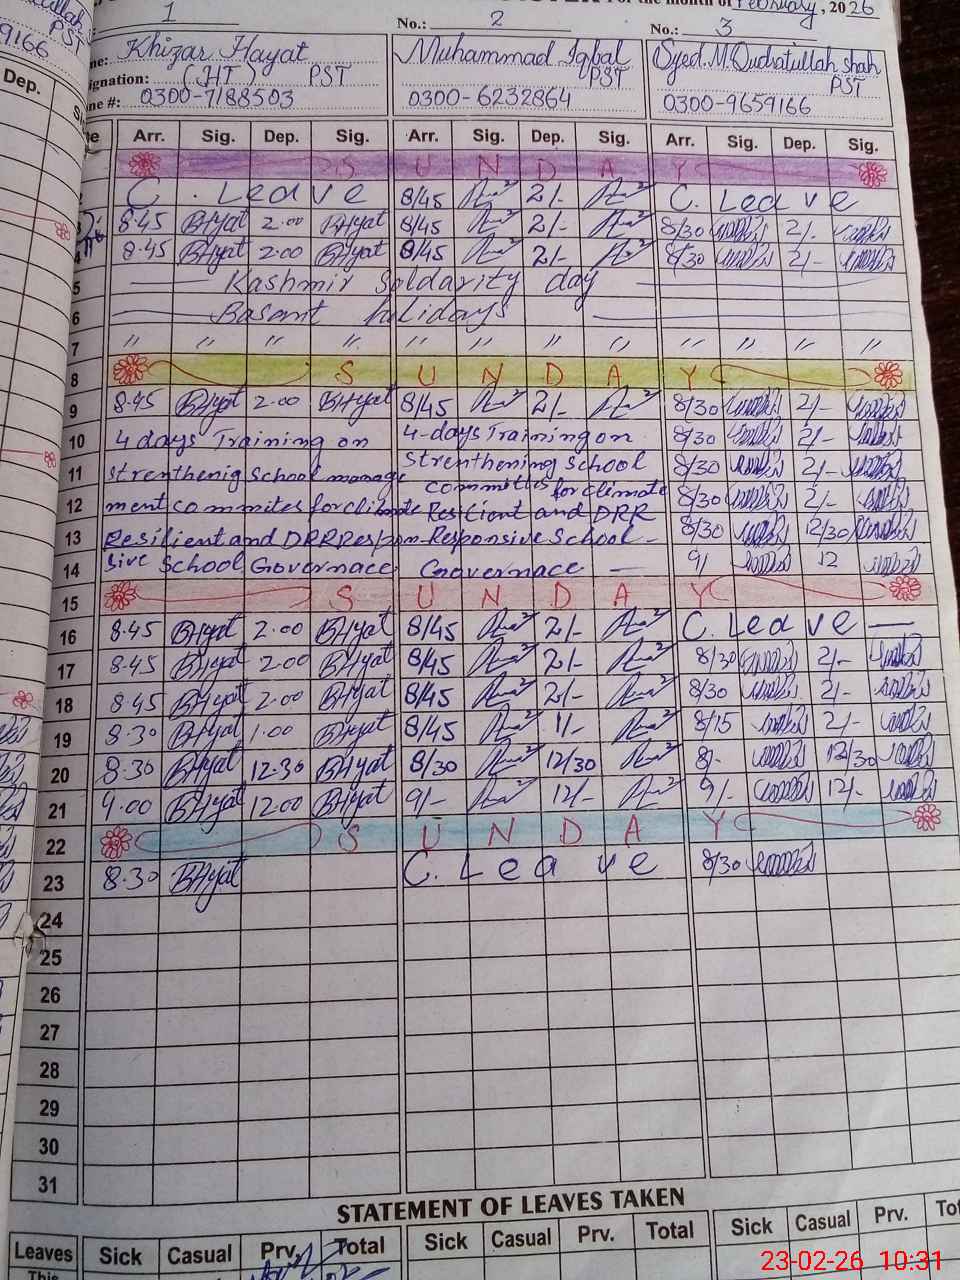 For the month of February, 2026
1 No.: 2 No.: 3
Khizar Hayat Muhammad Iqbal Syed.M.Qudratullah Shah
signation: (HT) PST PST PST
ne #: 0300-7188503 0300-6232864 0300-9659166
9166
PST
Dep.
Arr. Sig. Dep. Sig. Arr. Sig. Dep. Sig. Arr. Sig. Dep. Sig.
S U N D A Y
C. Leave 8/45 2/- C. Leave
8.45 BHyat 2.00 BHyat 8/45 2/- 8/30 2/-
4 8.45 BHyat 2.00 BHyat 8/45 2/- 8/30 2/-
5 Kashmir Soldarity day
6 Basant holidays
7 " " " " " " " " " " " "
8 S U N D A Y
9 8.45 BHyat 2.00 BHyat 8/45 2/- 8/30 2/-
10 4 days Training on 4-days Training on 8/30 2/-
11 strenthenig School manage Strenthening School 8/30 2/-
12 ment commites for climate committes for climate 8/30 2/-
Resilient and DRR
13 Resilient and DRR Respon- Responsive School - 8/30 12/30
14 sive School Governace Governace 9/ 12
15 S U N D A Y
16 8.45 BHyat 2.00 BHyat 8/45 2/- C. Leave
17 8.45 BHyat 2.00 BHyat 8/45 2/- 8/30 2/-
18 8.45 BHyat 2.00 BHyat 8/45 2/- 8/30 2/-
19 8.30 BHyat 1.00 BHyat 8/45 1/- 8/15 2/-
20 8.30 BHyat 12.30 BHyat 8/30 12/30 8/- 12/30
21 9.00 BHyat 12.00 BHyat 9/- 12/- 9/- 12/-
22 S U N D A Y
23 8.30 BHyat C. Leave 8/30
24
25
26
27
28
29
30
31
STATEMENT OF LEAVES TAKEN
Leaves Sick Casual Prv. Total Sick Casual Prv. Total Sick Casual Prv. Tot
This
23-02-26 10:31